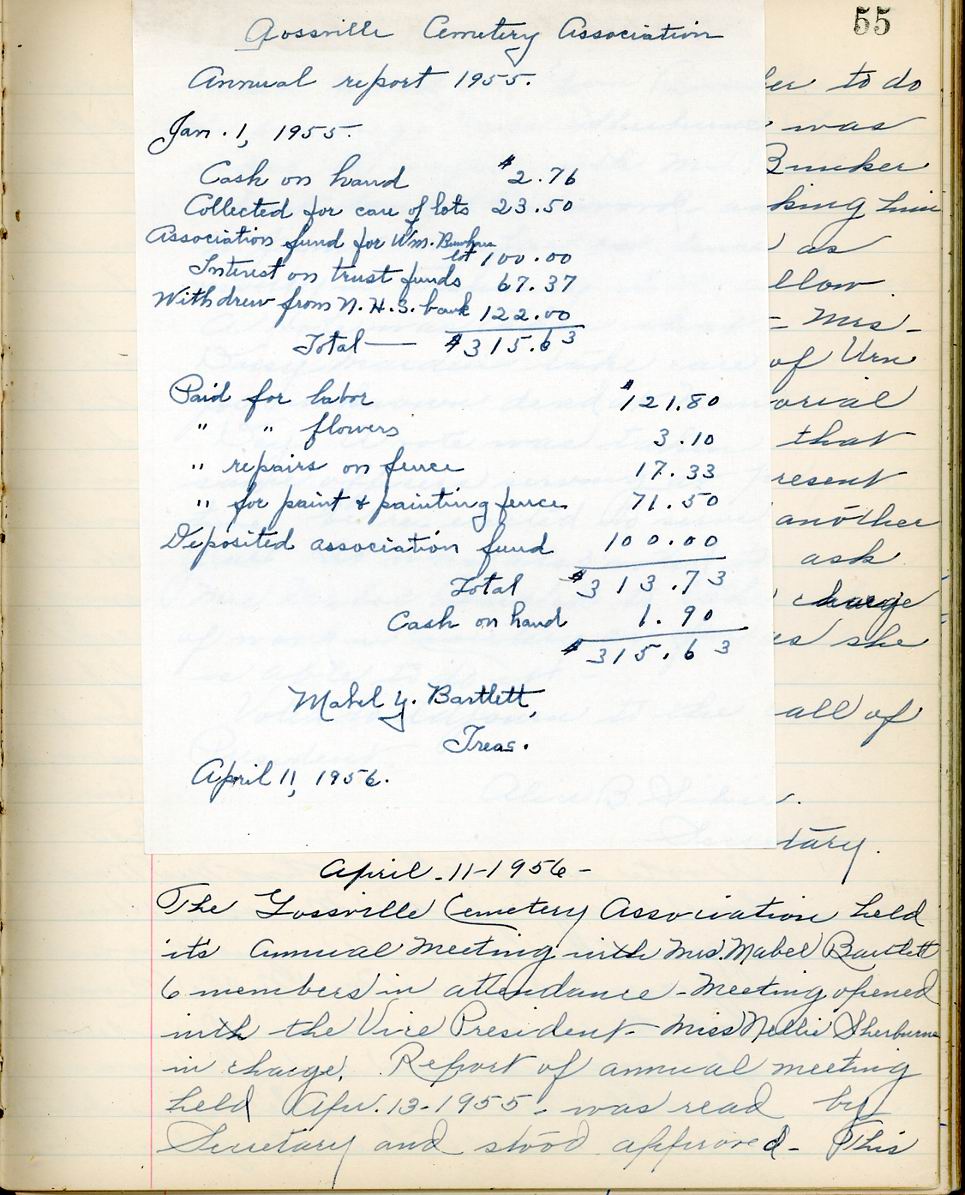 55
Gossville Cemetery Association
Annual report 1955.
Jan. 1, 1955.
Cash on hand $2.76
Collected for care of lots 23.50
Association fund for Wm.
lot 100.00
Interest on trust funds 67.37
Withdrew from N.H.S. bank 122.00
Total — $315.63
Paid for labor $121.80
" " flowers 3.10
" repairs on fence 17.33
" for paint & painting fence 71.50
Deposited association fund 100.00
Total $313.73
Cash on hand 1.90
$315.63
Mabel Y. Bartlett,
Treas.
April 11, 1956.
to do
was
Bunker
him
as
Mrs -
of Urn
that
another
ask
charge
she
all of
April - 11 - 1956 -
The Gossville Cemetery Association held
its annual meeting with Mrs. Mabel Bartlett
6 members in attendance - Meeting opened
with the Vice President - Miss Nellie Sherburne
in charge. Report of annual meeting
held Apr. 13 - 1955 - was read by
Secretary and stood approved - This